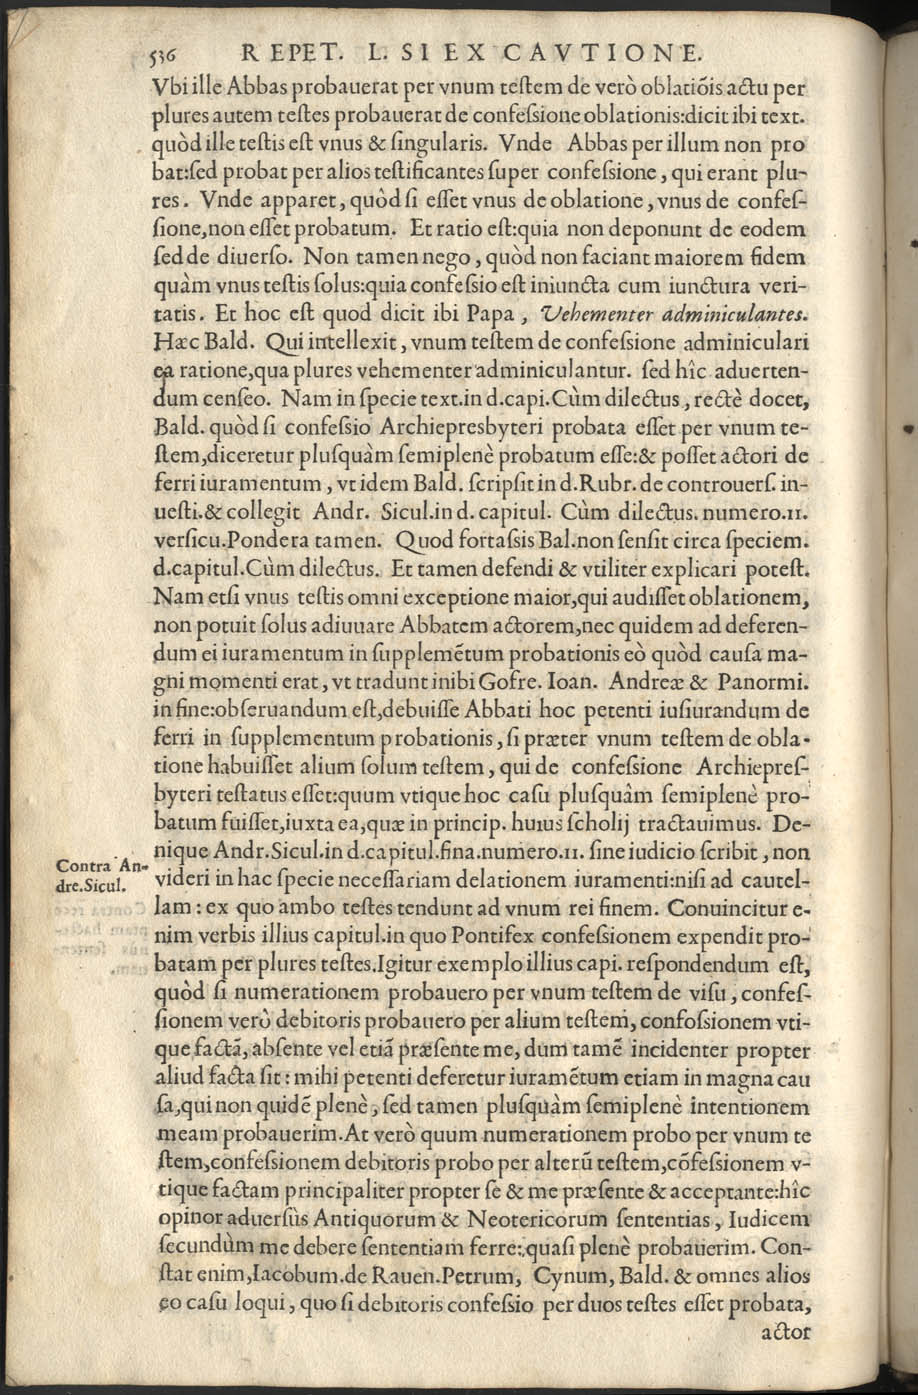 536 REPET. L. SI EX CAVTIONE.
Vbi ille Abbas probauerat per vnum teſtem de verò oblatiõis actu per
plures autem teſtes probauerat de confeſsione oblationis:dicit ibi text.
quòd ille teſtis eſt vnus & ſingularis. Vnde Abbas per illum non pro
bat:ſed probat per alios teſtificantes ſuper confeſsione, qui erant plu-
res. Vnde apparet, quòd ſi eſſet vnus de oblatione, vnus de confeſ-
ſione,non eſſet probatum. Et ratio eſt:quia non deponunt de eodem
ſed de diuerſo. Non tamen nego, quòd non faciant maiorem fidem
quàm vnus teſtis ſolus:quia confeſsio eſt iniuncta cum iunctura veri-
tatis. Et hoc eſt quod dicit ibi Papa, Vehementer adminiculantes.
Hæc Bald. Qui intellexit, vnum teſtem de confeſsione adminiculari
ea ratione,qua plures vehementer adminiculantur. ſed hîc aduerten-
dum cenſeo. Nam in ſpecie text.in d.capi.Cùm dilectus, rectè docet,
Bald. quòd ſi confeſsio Archiepresbyteri probata eſſet per vnum te-
ſtem,diceretur pluſquàm ſemiplenè probatum eſſe:& poſſet actori de
ferri iuramentum, vt idem Bald. ſcripſit in d.Rubr. de controuerſ. in-
ueſti.& collegit Andr. Sicul.in d. capitul. Cùm dilectus. numero.11.
verſicu.Pondera tamen. Quod fortaſsis Bal.non ſenſit circa ſpeciem.
d.capitul.Cùm dilectus. Et tamen defendi & vtiliter explicari poteſt.
Nam etſi vnus teſtis omni exceptione maior,qui audiſſet oblationem,
non potuit ſolus adiuuare Abbatem actorem,nec quidem ad deferen-
dum ei iuramentum in ſupplemẽtum probationis eò quòd cauſa ma-
gni momenti erat, vt tradunt inibi Gofre. Ioan. Andreæ & Panormi.
in fine:obſeruandum eſt,debuiſſe Abbati hoc petenti iuſiurandum de
ferri in ſupplementum probationis, ſi præter vnum teſtem de obla-
tione habuiſſet alium ſolum teſtem, qui de confeſsione Archiepreſ-
byteri teſtatus eſſet:quum vtique hoc caſu pluſquàm ſemiplenè pro-
batum fuiſſet,iuxta ea,quæ in princip. huius ſcholij tractauimus. De-
nique Andr.Sicul.in d.capitul.fina.numero.11. ſine iudicio ſcribit, non
Contra An-
dre.Sicul.
videri in hac ſpecie neceſſariam delationem iuramenti:niſi ad cautel-
lam: ex quo ambo teſtes tendunt ad vnum rei finem. Conuincitur e-
nim verbis illius capitul.in quo Pontifex confeſsionem expendit pro-
batam per plures teſtes.Igitur exemplo illius capi. reſpondendum eſt,
quòd ſi numerationem probauero per vnum teſtem de viſu, confeſ-
ſionem verò debitoris probauero per alium teſtem, confoſsionem vti-
que factã, abſente vel etiã præſente me, dum tamẽ incidenter propter
aliud facta ſit: mihi petenti deferetur iuramẽtum etiam in magna cau
ſa,qui non quidẽ plenè, ſed tamen pluſquàm ſemiplenè intentionem
meam probauerim.At verò quum numerationem probo per vnum te
ſtem,confeſsionem debitoris probo per alterũ teſtem,cõfeſsionem v-
tique factam principaliter propter ſe & me præſente & acceptante:hîc
opinor aduerſùs Antiquorum & Neotericorum ſententias, Iudicem
ſecundùm me debere ſententiam ferre:quaſi plenè probauerim. Con-
ſtat enim,Iacobum.de Rauen.Petrum, Cynum, Bald. & omnes alios
eo caſu loqui, quo ſi debitoris confeſsio per duos teſtes eſſet probata,
actor